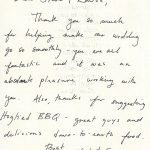 Thank you so much
for helping make our wedding
go so smoothly - you are all
fantastic and it was an
absolute pleasure working with
you. Also, thanks for suggesting
Hogtied BBQ - great guys and
delicious down-to-earth food.
Best